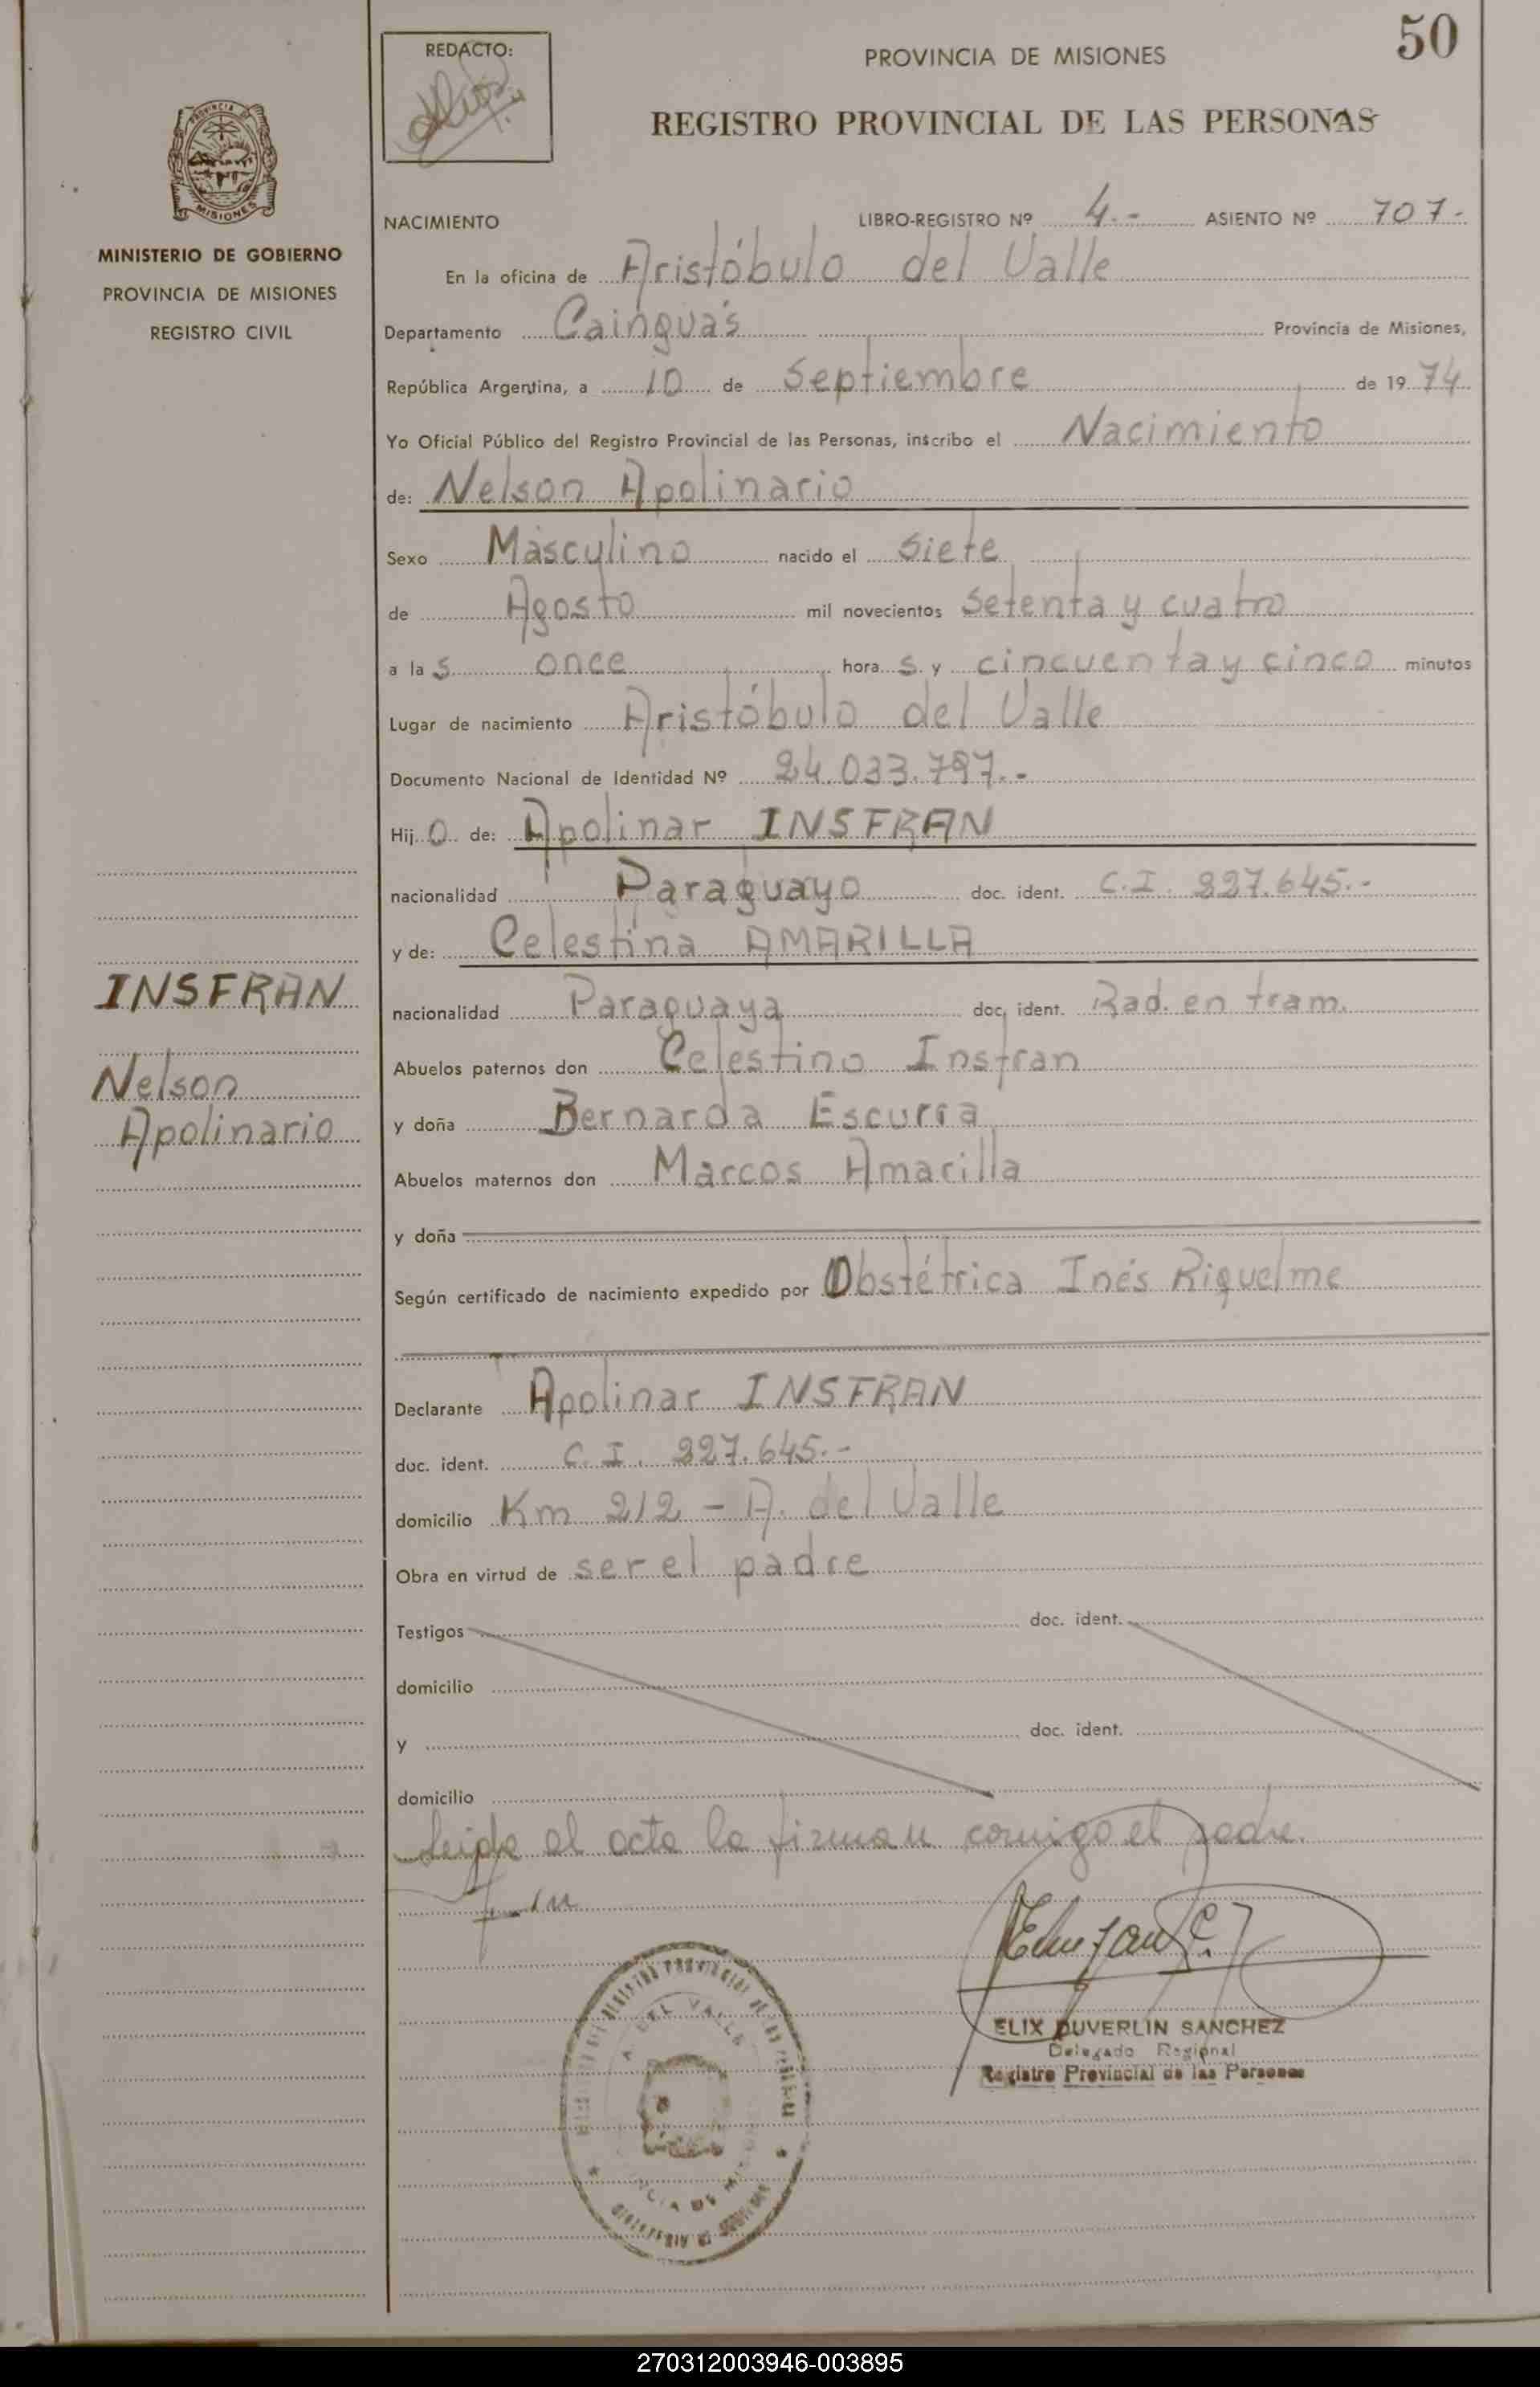 50
REDACTO:
PROVINCIA DE MISIONES
REGISTRO PROVINCIAL DE LAS PERSONAS
PROVINCIA DE
MISIONES
MINISTERIO DE GOBIERNO
PROVINCIA DE MISIONES
REGISTRO CIVIL
NACIMIENTO LIBRO-REGISTRO Nº 4.- ASIENTO Nº 707-
En la oficina de Aristóbulo del Valle
Departamento Cainguás Provincia de Misiones,
República Argentina, a 10 de Septiembre de 1974
Yo Oficial Público del Registro Provincial de las Personas, inscribo el Nacimiento
de: Nelson Apolinario
Sexo Masculino nacido el siete
de Agosto mil novecientos setenta y cuatro
a las once horas y cincuenta y cinco minutos
Lugar de nacimiento Aristóbulo del Valle
Documento Nacional de Identidad Nº 24.033.797.-
Hijo de: Apolinar INSFRAN
nacionalidad Paraguayo doc. ident. C.I. 227.645.-
y de: Celestina AMARILLA
nacionalidad Paraguaya doc. ident. Rad. en tram.
Abuelos paternos don Celestino Insfran
y doña Bernarda Escurra
Abuelos maternos don Marcos Amarilla
y doña
Según certificado de nacimiento expedido por Obstétrica Inés Riquelme
Declarante Apolinar INSFRAN
doc. ident. C.I. 227.645.-
domicilio Km 212 - A. del Valle
Obra en virtud de ser el padre
Testigos doc. ident.
domicilio
y doc. ident.
domicilio
Leida el acta la firman conmigo el padre.
INSFRAN
Nelson
Apolinario
ELIX DUVERLIN SANCHEZ
Delegado Regional
Registro Provincial de las Personas
A. DEL VALLE
270312003946-003895